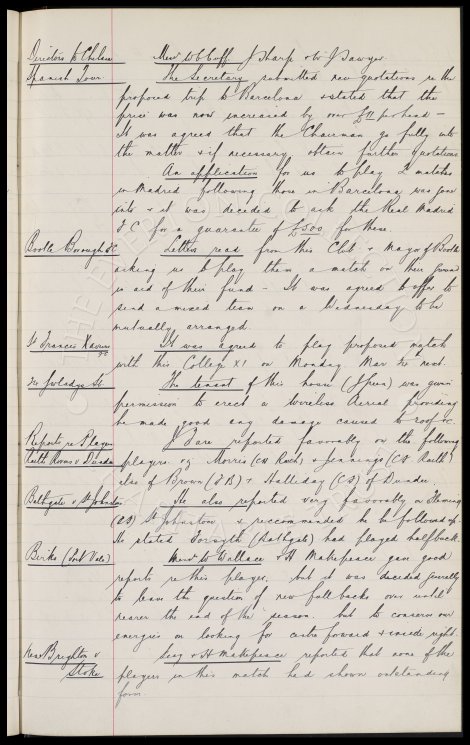 Directors to Chelsea Messrs W C Cuff J Sharp & W J Sawyer
Spanish Tour The Secretary submitted new quotations re the
proposed trip to Barcelona & stated that the
price was now increased by over £11 per head –
It was agreed that the Chairman go fully into
the matter & if necessary obtain further quotations.
An application for us to play 2 matches
in Madrid following those in Barcelona was gone
into & it was decided to ask the Real Madrid
F.C. for a guarantee of £500 for these.
Bootle Borough FC Letters read from this Club & Mayor of Bootle
asking us to play them a match on their ground
in aid of their fund – It was agreed to offer to
send a mixed team on a Wednesday to be
mutually arranged.
St Francis Xaviers It was agreed to play proposed match
with this College XI on Monday Mar next.
Gwladys St The tenant of this house (Speen) was given
permission to erect a wireless Aerial providing
he made good any damage caused to roof &c
Reports re Players J Dare reported favorably on the following
Raith Rovers v Dundee players eg Morris (CH Raith) & Jennings (CF Raith)
also of Brown (LB) & Halliday (CF) of Dundee.
Bathgate v St Johnstone He also reported very favorably on Fleming
St Johnstone & recommended he be followed up.
He stated Forsyth (Bathgate) had played halfback.
Birks (Port Vale) Messrs Wallace & H Makepeace gave good
reports re this player, but it was decided generally
to leave the question of new full backs over until
nearer the end of the season, but to conserve our
energies on looking for centre forward & inside right.
New Brighton v Secy & H Makepeace reported that none of the
Stoke players in this match had shown outstanding
form.